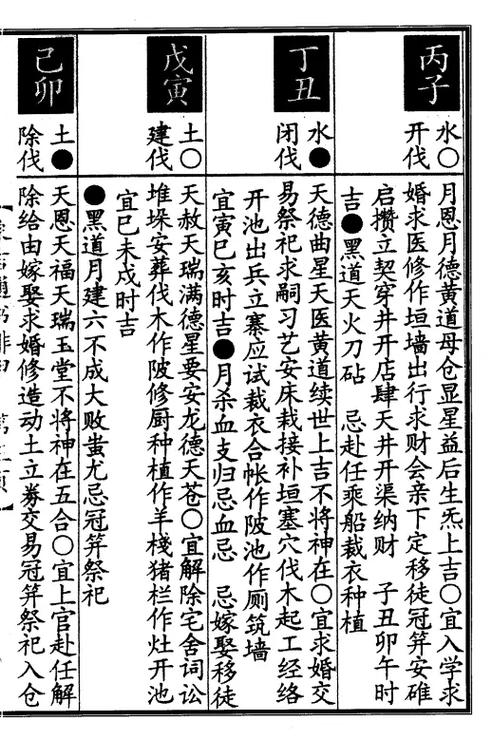 丙子
水○
开伐
月恩月德黄道母仓显星益后生炁上吉○宜入学求
婚求医修作垣墙出行求财会亲下定移徒冠笄安碓
启攒立契穿井开店肆天井开渠纳财　子丑卯午时
吉●黑道天火刀砧　忌赴任乘船裁衣种植
丁丑
水●
闭伐
天德曲星天医黄道续世上吉不将神在○宜求婚交
易祭祀求嗣习艺安床栽接补垣塞穴伐木起工经络
开池出兵立寨应试裁衣合帐作陂池作厕筑墙
宜寅巳亥时吉●月杀血支归忌血忌　忌嫁娶移徒
戊寅
土○
建伐
天赦天瑞满德星要安龙德天苍○宜解除宅舍词讼
堆垛安葬伐木作陂修厨种植作羊栈猪栏作灶开池
宜巳未戌时吉
●黑道月建六不成大败蚩尤忌冠笄祭祀
己卯
土●
除伐
天恩天福天瑞玉堂不将神在五合○宜上官赴任解
除给由嫁娶求婚修造动土立券交易冠笄祭祀入仓